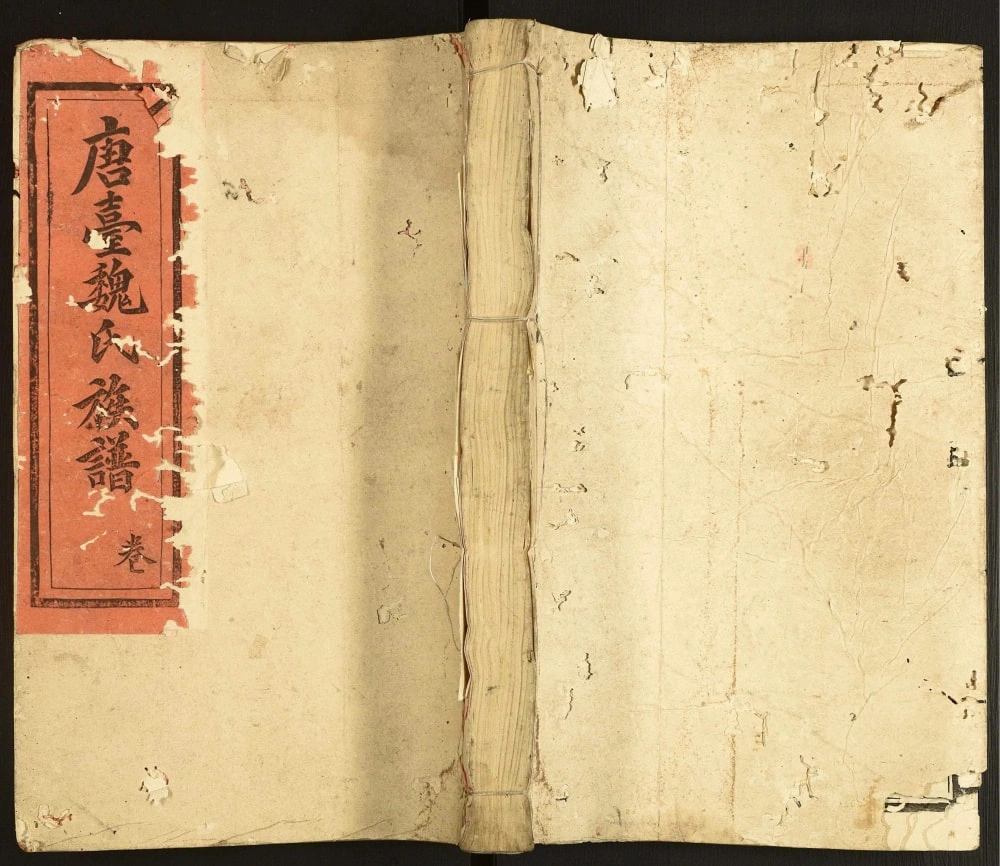 唐臺魏氏族譜
卷